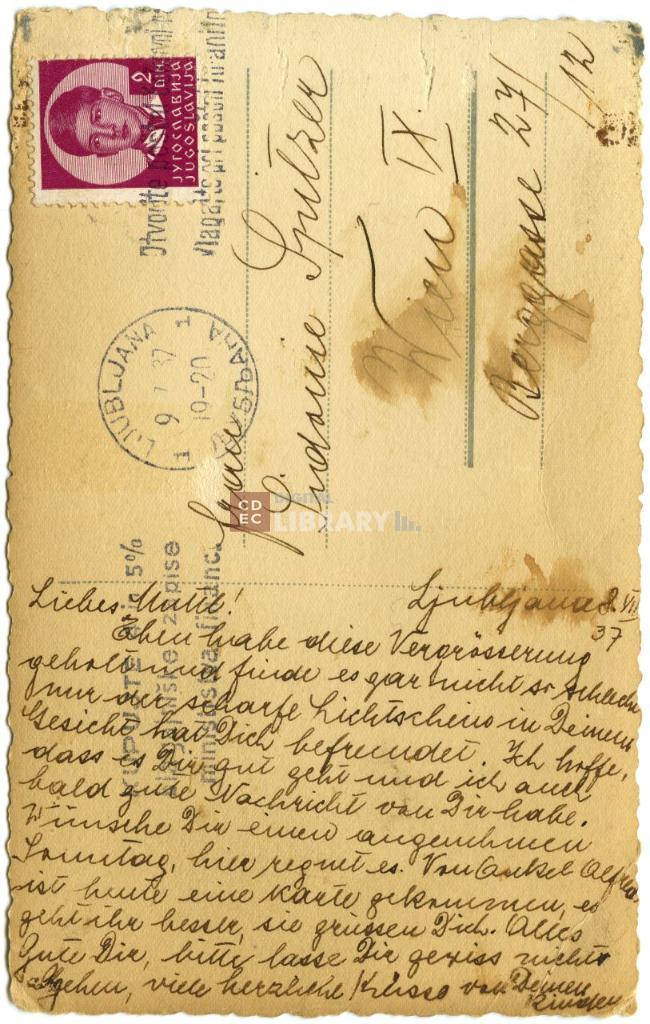 2
ЈУГОСЛАВИЈА
JUGOSLAVIJA
vlagajte pri poštni hranilnici
LJUBLJANA 1
9 37
19-20
1 ЉУБЉАНА 1
5%
zapise
ministrstva financ.
Frau
Sidonie Spitzer
Wien IX.
Berggasse 27/12
CDEC DIGITAL LIBRARY
Ljubljana 9. VII
37
Liebes Mutti!
Eben habe diese Vergrösserung
geholt und finde es gar nicht so schlecht
nur der scharfe Lichtschein in Deinem
Gesicht hat Dich befremdet. Ich hoffe,
dass es Dir gut geht und ich auch
bald gute Nachricht von Dir habe.
Wünsche Dir einen angenehmen
Sonntag, hier regnet es. Von Onkel Alfred
ist heute eine Karte gekommen, es
geht ihr besser, sie grüssen Dich. Alles
Gute Dir, bitte lasse Dir gewiss nichts
viele herzliche Küsse von Deinen
Kindern